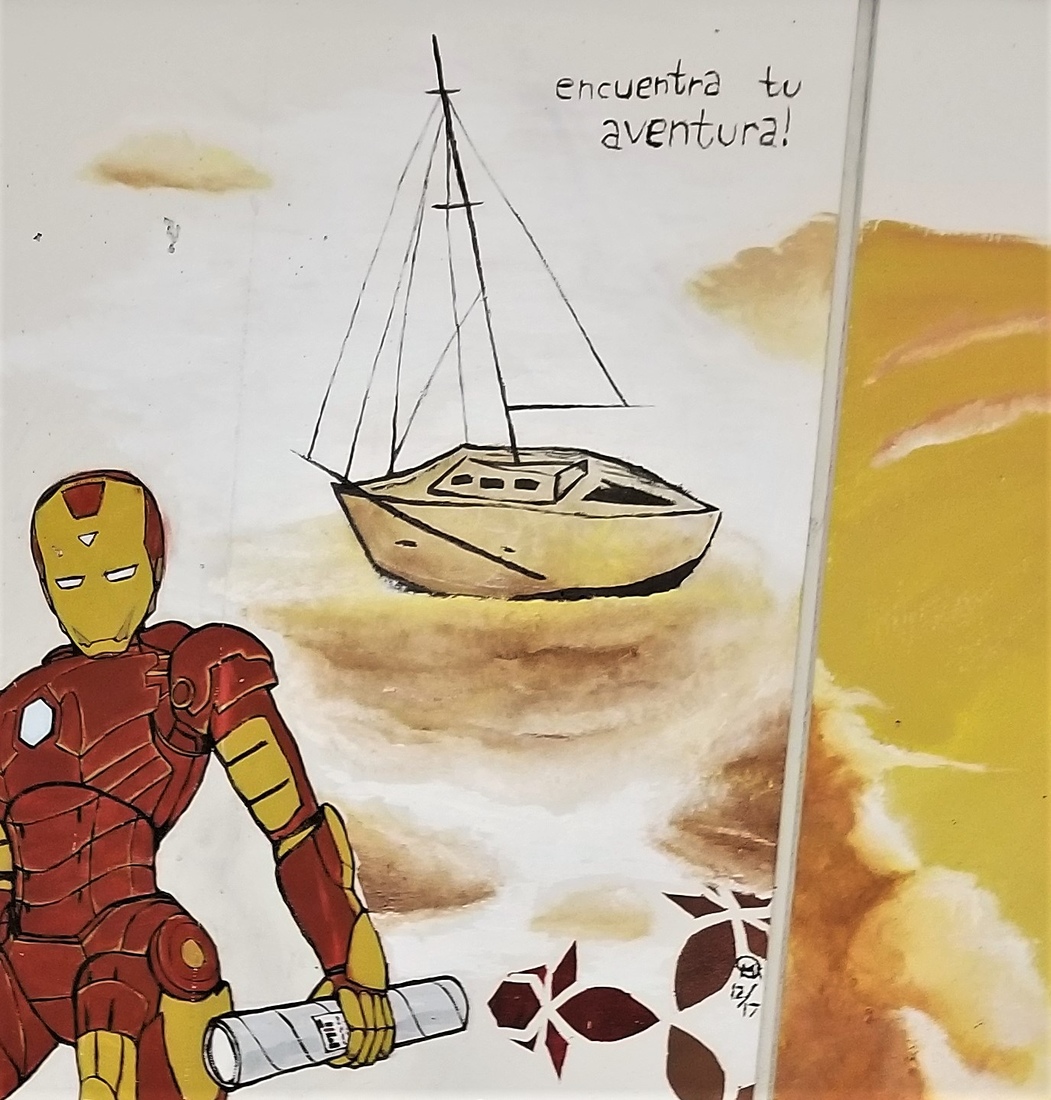 encuentra tu
aventura!
12/17